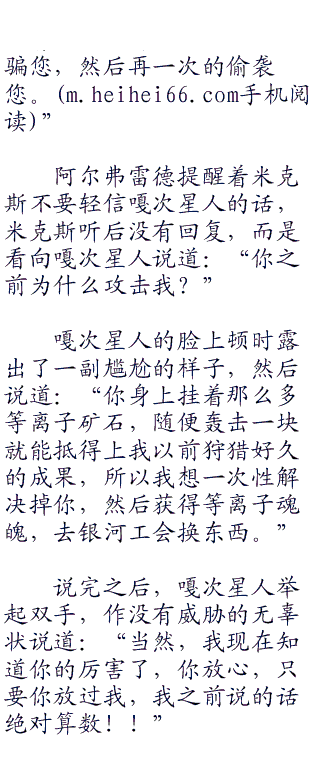 骗您，然后再一次的偷袭
您。(m.heihei66.com手机阅
读)”
阿尔弗雷德提醒着米克
斯不要轻信嘎次星人的话，
米克斯听后没有回复，而是
看向嘎次星人说道：“你之
前为什么攻击我？”
嘎次星人的脸上顿时露
出了一副尴尬的样子，然后
说道：“你身上挂着那么多
等离子矿石，随便轰击一块
就能抵得上我以前狩猎好久
的成果，所以我想一次性解
决掉你，然后获得等离子魂
魄，去银河工会换东西。”
说完之后，嘎次星人举
起双手，作没有威胁的无辜
状说道：“当然，我现在知
道你的厉害了，你放心，只
要你放过我，我之前说的话
绝对算数！！”